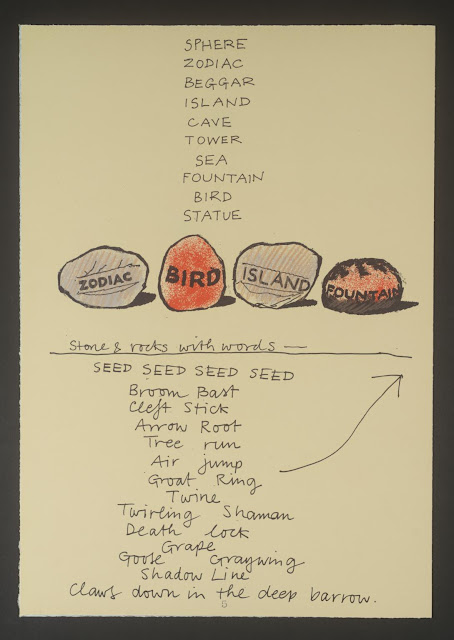 SPHERE
ZODIAC
BEGGAR
ISLAND
CAVE
TOWER
SEA
FOUNTAIN
BIRD
STATUE
ZODIAC
BIRD
ISLAND
FOUNTAIN
Stone & rocks with words —
SEED SEED SEED SEED
Broom Bast
Cleft Stick
Arrow Root
Tree run
Air jump
Groat Ring
Twine
Twirling Shaman
Death lock
Grape
Goose Graywing
Shadow Line
Claws down in the deep barrow.
6